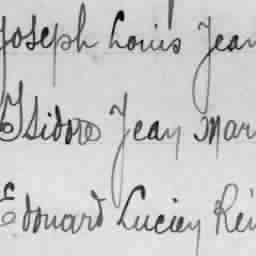 Joseph Louis Jean
Isidore Jean Mar
Edouard Lucien Ré